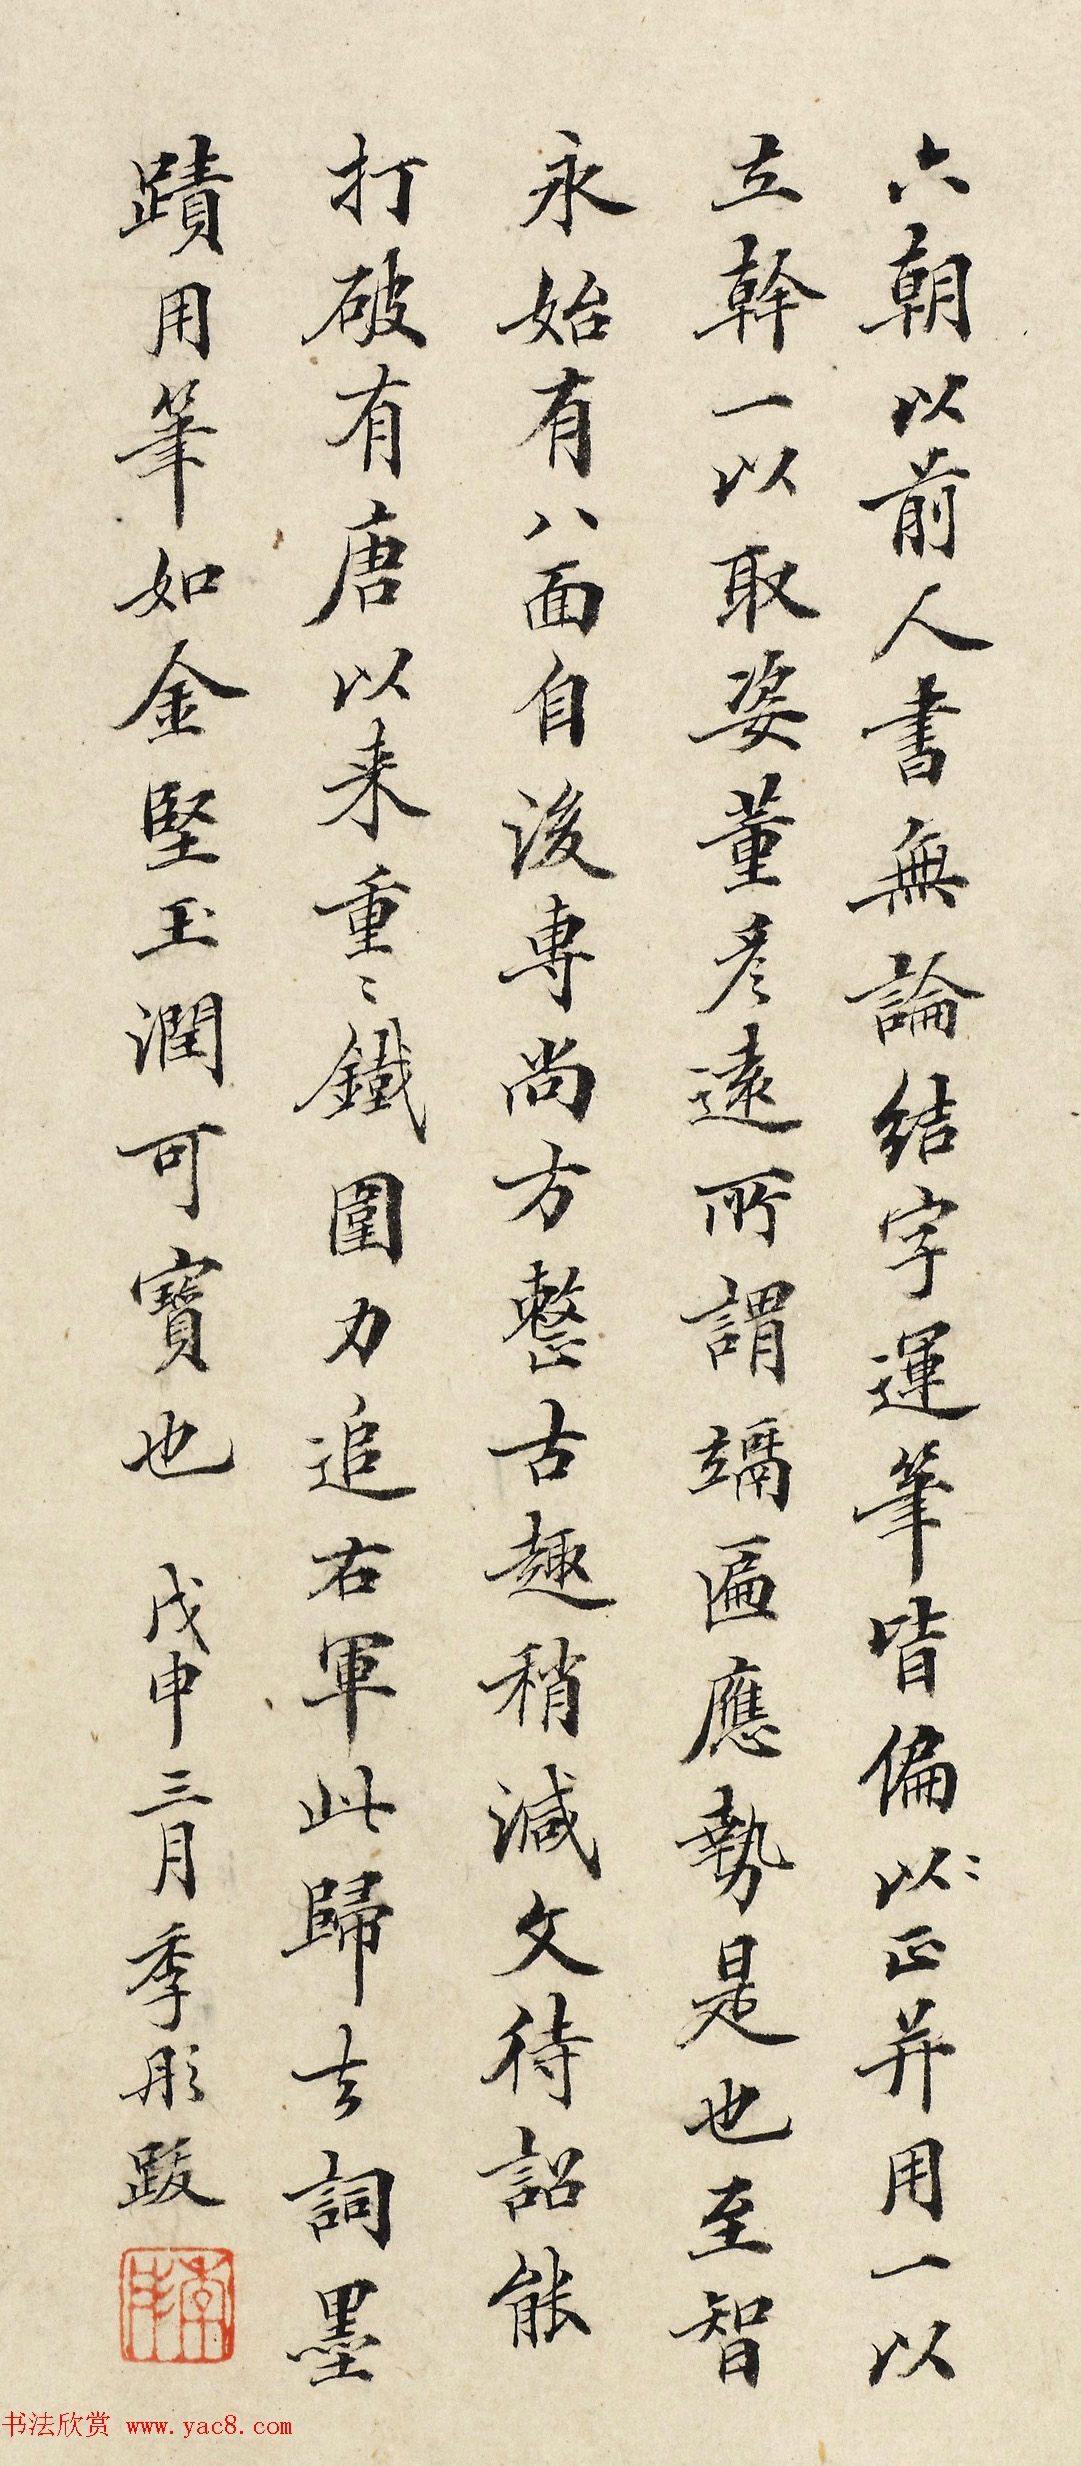 六朝以前人書無論結字運筆皆偏以〻正并用一以
立幹一以取姿董彥遠所謂隔匾應勢是也至智
永始有八面自後專尚方整古趣稍減文待詔能
打破有唐以来重〻鐵圍力追右軍此歸去詞墨
蹟用筆如金堅玉潤可寶也 戊申三月季彤跋
书法欣赏 www.yac8.com